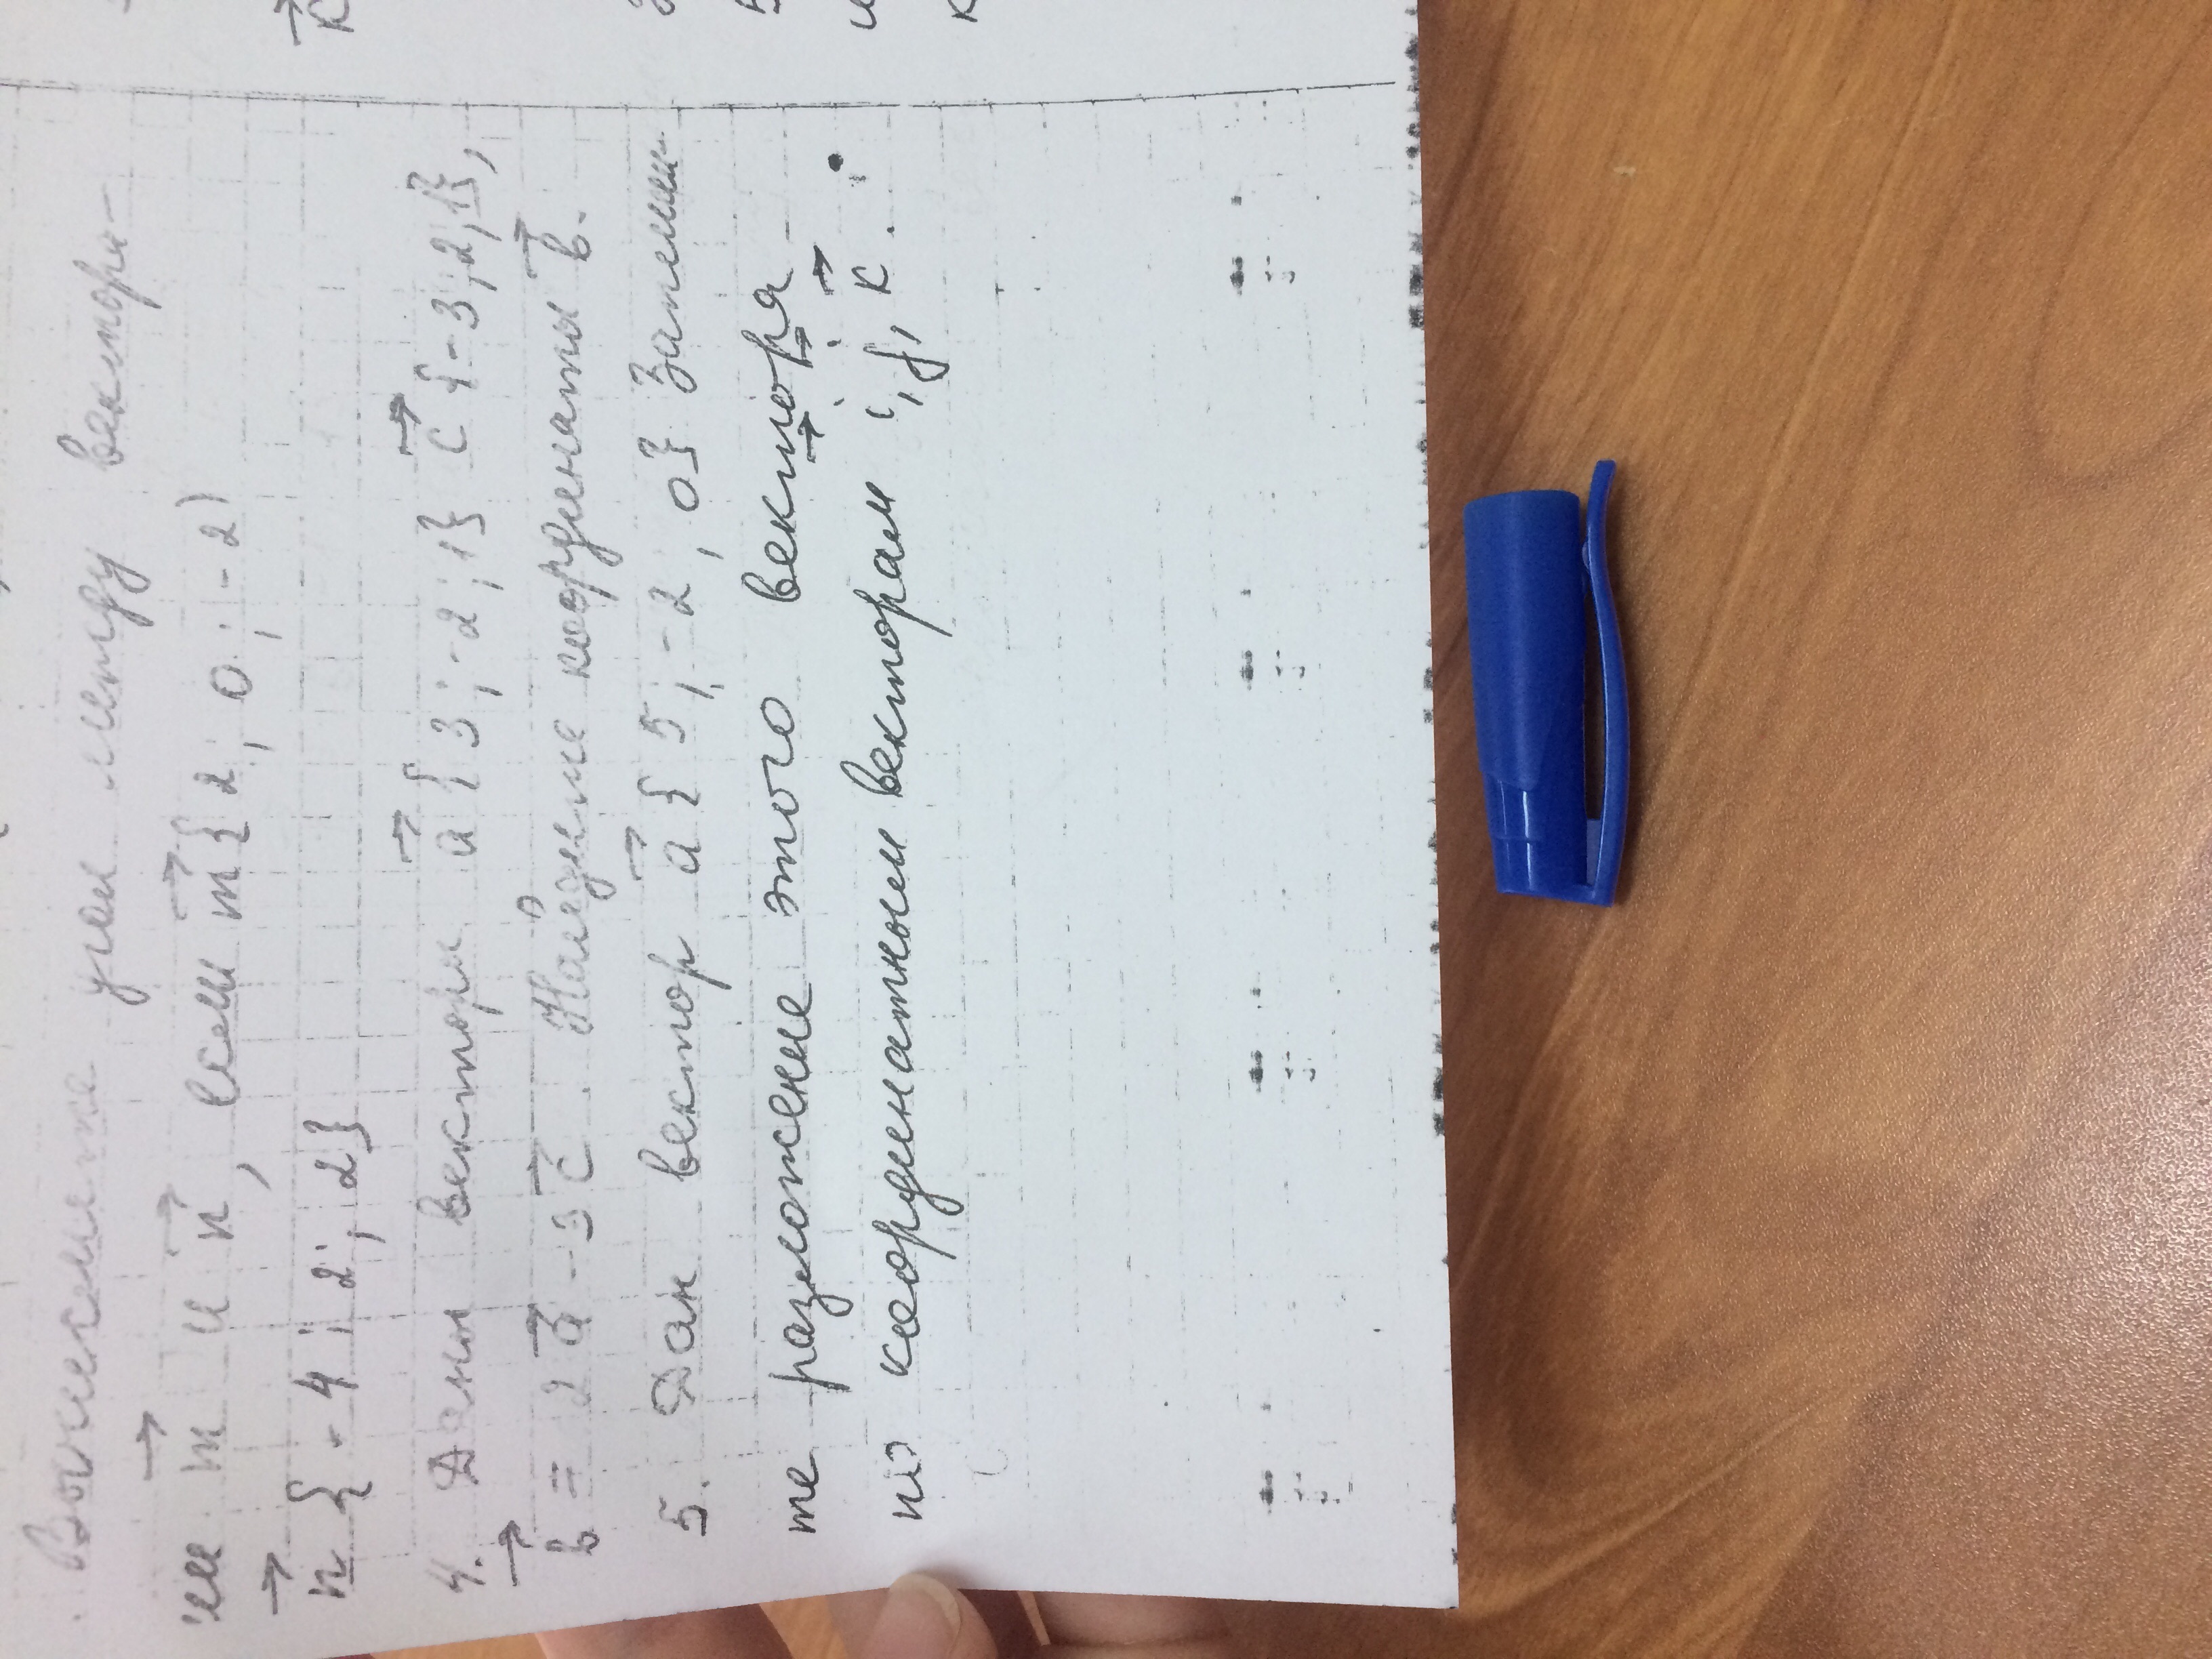 Вычислите угол между вектора-
ми m и n, если m{2; 0; -2)
n{-4; 2; 2}
4. Даны векторы a{3; -2; 1} c{-3; 2; 1},
b = 2a - 3c. Найдите координаты b.
5. Дан вектор a{5; -2, 0} Запиши-
те разложение этого вектора
по координатным векторам i, j, k.